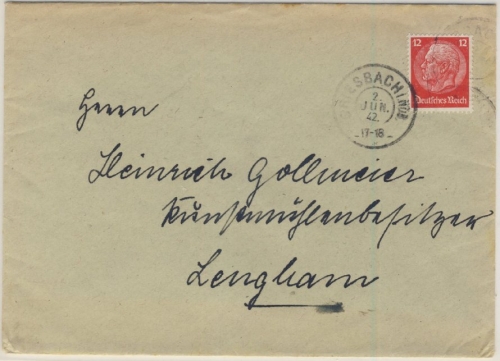 12 12
Deutsches Reich
GRIESBACH (ROTT
2.
JUN.
42.
-17-18-
Herrn
Heinrich Gollmeier
Kunstmühlenbesitzer
Lengham